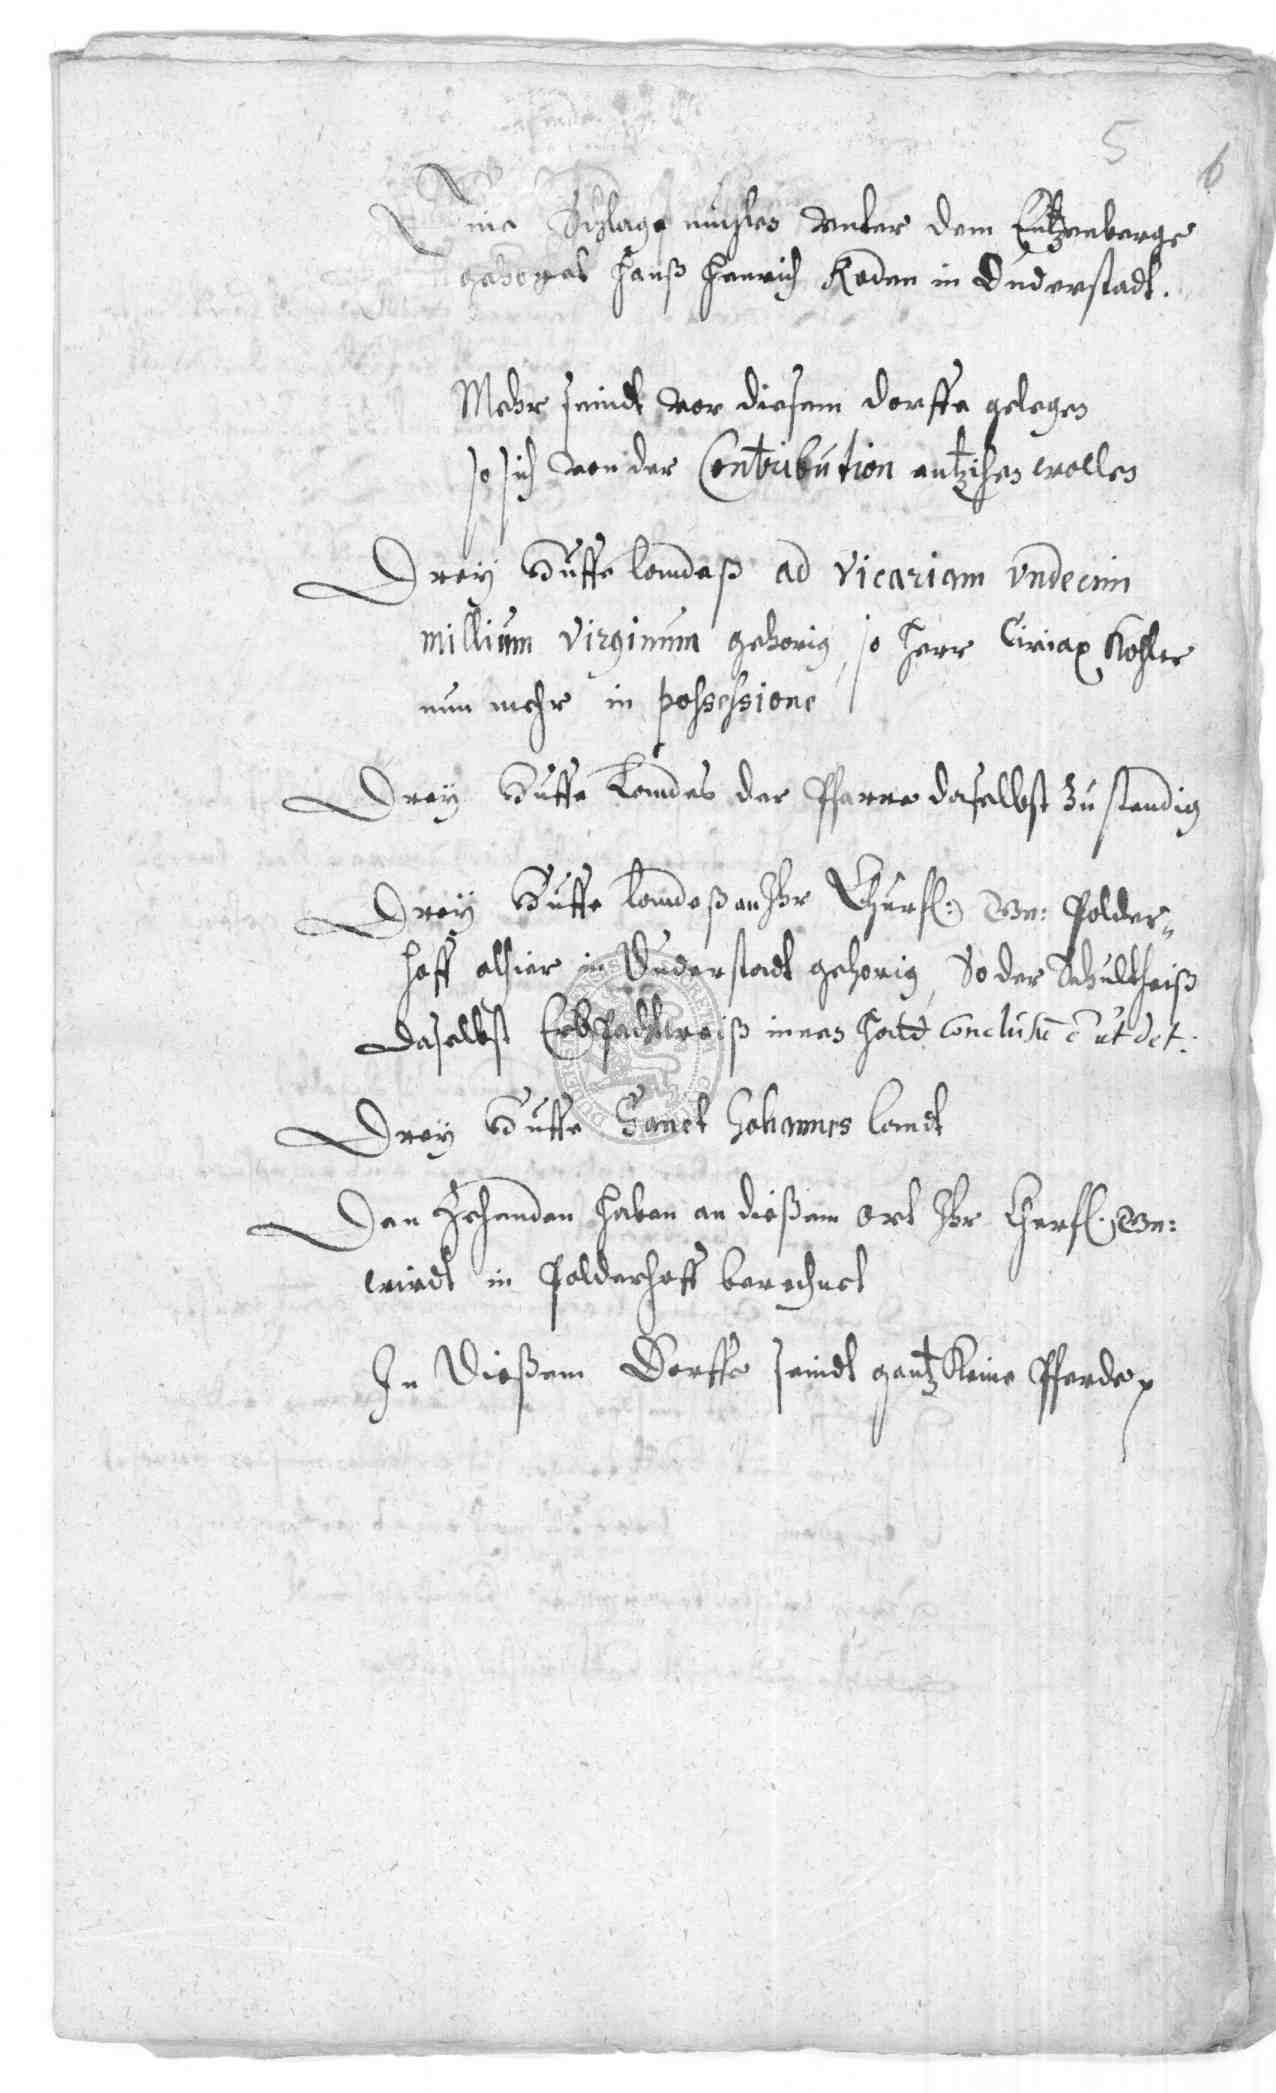 5 6
Eine Schlage muhlen unter dem Eutzenberge
gehoret Hanß Henrich Koden in Duderstadt.
Mehr seindt vor diesem dorffe gelegen
so sich von der Contribution entzihen wollen
Drey Huffe landeß ad Vicariam Vndecim
millium Virginum gehorig, so Herr Ciriax Kohler
nun mehr in possessione
Drey Huffe Landes der Pfarre daselbst Zustendig
Drey Huffe landeß an Ihr Churfl: Gn: Polder„
hoff alhier in Duderstadt gehorig, So der Schultheiß
daselbst Erb Pachtweiß innen hatt conclusũ ẽ ut det:
Drey Huffe Sanct Johannes landt
Den Zehenden haben an dießem ort Ihr Churfl: Gn:
wirdt in Polderhoff berechnet
In Dießem Dorffe seindt gantz Keine Pferde